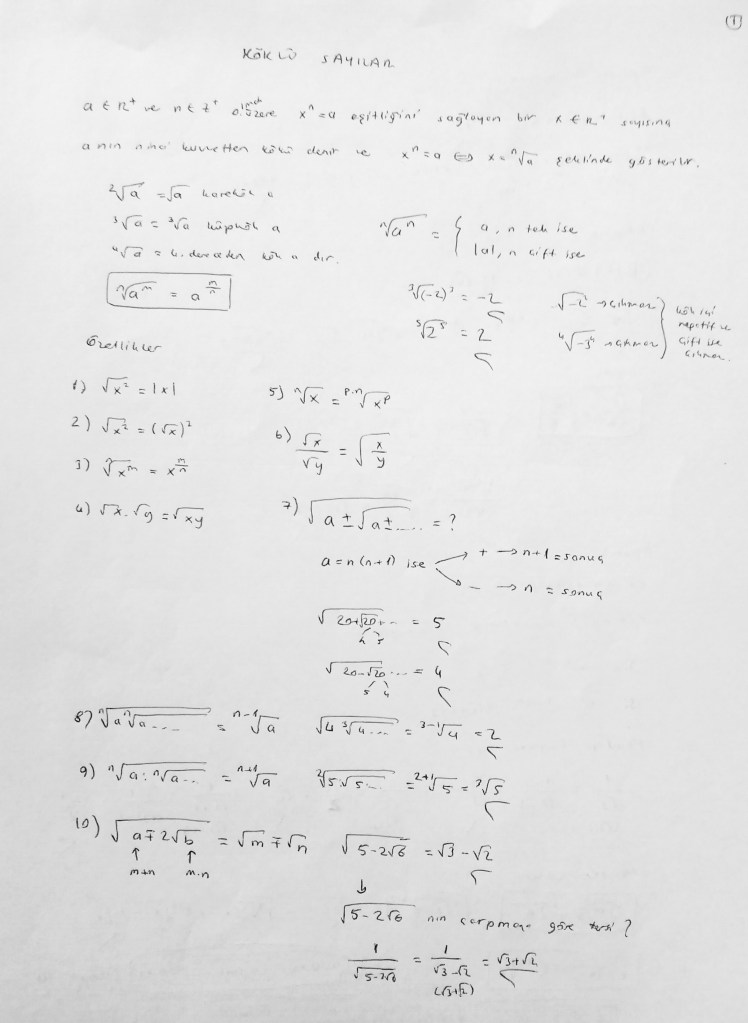 1
KÖKLÜ SAYILAR
a ∈ R⁺ ve n ∈ Z⁺ olmak üzere xⁿ = a eşitliğini sağlayan bir x ∈ R⁺ sayısına
a nın ninci kuvvetten kökü denir ve xⁿ = a ⇔ x = ⁿ√a şeklinde gösterilir.
²√a = √a karekök a
³√a = ³√a küpkök a
⁴√a = 4. dereceden kök a dır.
ⁿ√(a^m) = a^(m/n)
ⁿ√(aⁿ) = { a, n tek ise
|a|, n çift ise
³√(-2)³ = -2
⁵√2⁵ = 2
√-2 → çıkmaz
⁴√-3⁴ → çıkmaz
} kök içi
negatif ve
çift ise
çıkmaz.
Özellikler
1) √x² = |x|
2) √x² = (√x)²
3) ⁿ√x^m = x^(m/n)
4) √x . √y = √xy
5) ⁿ√x = ᵖ·ⁿ√xᵖ
6) √x / √y = √(x/y)
7) √(a ± √(a ± ....)) = ?
a = n(n+1) ise + → n+1 = sonuç
- → n = sonuç
√(20+√20+...) = 5
4 5
√(20-√20...) = 4
5 4
8) ⁿ√(a ⁿ√a....) = ⁿ⁻¹√a √(4 ³√4...) = ³⁻¹√4 = 2
9) ⁿ√(a : ⁿ√a...) = ⁿ⁺¹√a ²√(5:√5...) = ²⁺¹√5 = ³√5
10) √(a ∓ 2√b) = √m ∓ √n √(5-2√6) = √3 - √2
↑ ↑
m+n m.n
↓
√(5-2√6) nin çarpmaya göre tersi ?
1/√(5-2√6) = 1/(√3-√2) = √3+√2
(√3+√2)